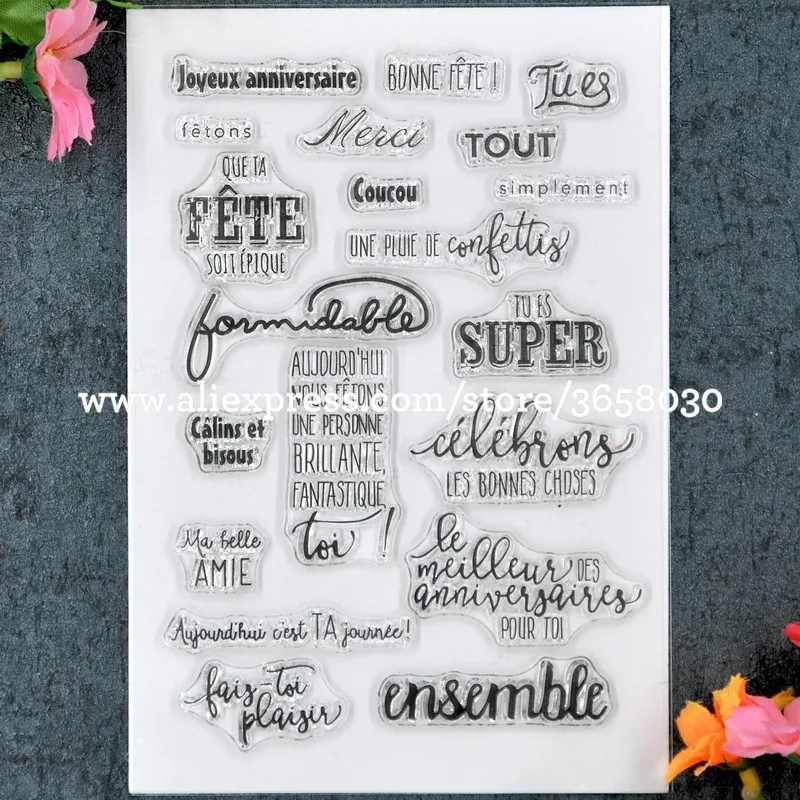 Joyeux anniversaire
BONNE FÊTE !
Tu es
fêtons
Merci
TOUT
QUE TA
FÊTE
SOIT ÉPIQUE
Coucou
simplement
UNE PLUIE DE confettis
formidable
TU ES
SUPER
AUJOURD'HUI
NOUS FÊTONS
UNE PERSONNE
BRILLANTE,
FANTASTIQUE
toi !
www.aliexpress.com/store/3658030
Câlins et
bisous
célébrons
LES BONNES CHOSES
Ma belle
AMIE
le
meilleur DES
anniversaires
POUR TOI
Aujourd'hui c'est TA journée !
fais-toi
plaisir
ensemble